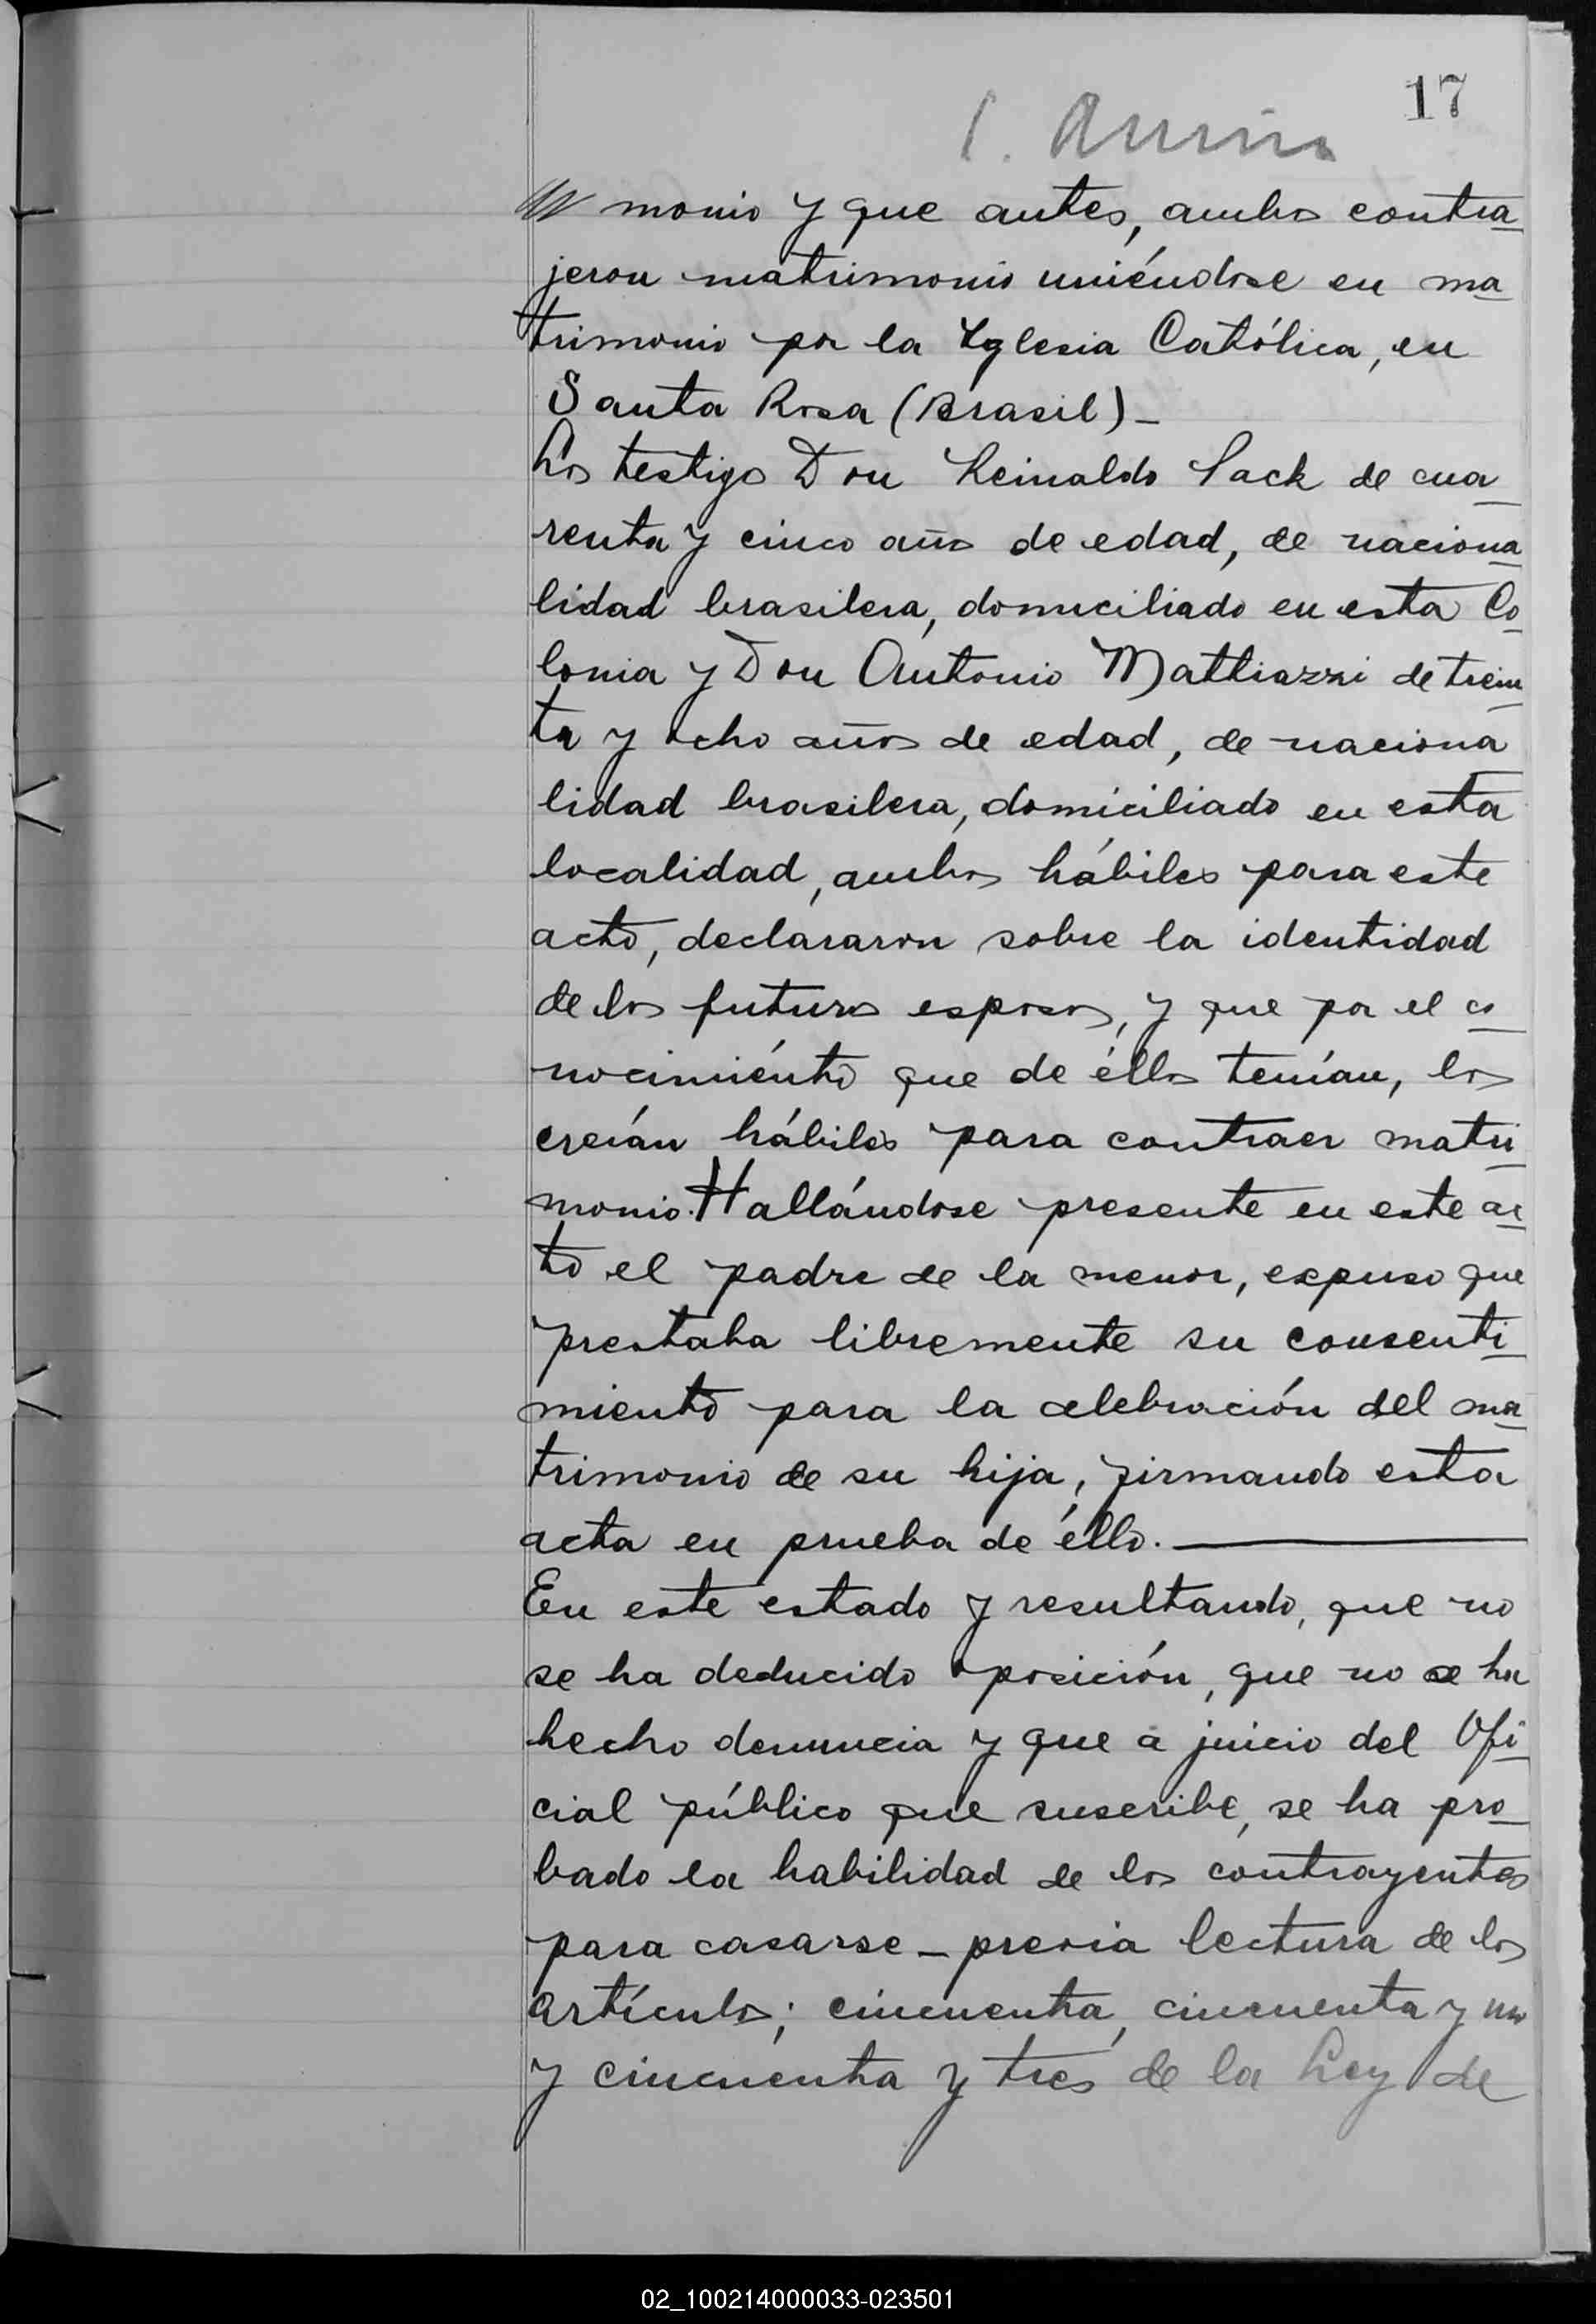 17
monio y que antes, ambos contra
jeron matrimonio uniéndose en ma
trimonio por la Yglesia Católica, en
Santa Rosa (Brasil)_
Los testigos Don Reinaldo Sack de cua
renta y cinco años de edad, de naciona
lidad brasilera, domiciliado en esta Co
lonia y Don Antonio Mattiazzi de trein
ta y ocho años de edad, de naciona
lidad brasilera, domiciliado en esta
localidad, ambos hábiles para este
acto, declararon sobre la identidad
de los futuros esposos, y que por el co
nocimiénto que de éllos tenían, los
creían hábiles para contraer matri
monio. Hallándose presente en este ac
to el padre de la menor, expuso que
prestaba libremente su consenti
miento para la celebración del ma
trimonio de su hija, firmando esta
acta en prueba de éllo.
En este estado y resultando, que no
se ha deducido oposición, que no se ha
hecho denuncia y que a juicio del Ofi
cial público que suscribe, se ha pro
bado la habilidad de los contrayentes
para casarse _ previa lectura de los
artículos; cincuenta, cincuenta y uno
y cincuenta y tres de la Ley de
02_100214000033-023501